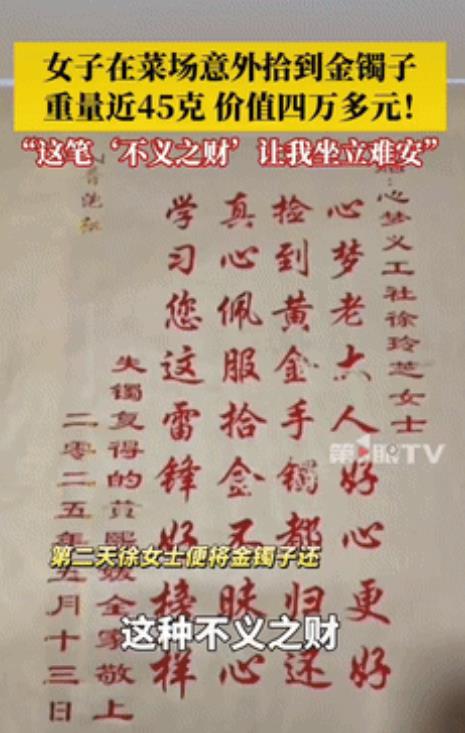 女子在菜场意外拾到金镯子
重量近45克 价值四万多元!
“这笔‘不义之财’让我坐立难安”
心梦义工社徐玲芝女士
心梦老大人好心更好
捡到黄金手镯都归还
真心佩服拾金不昧心
学习您这雷锋好榜样
失镯复得的黄熙媛全家敬上
二零二五年五月十三日
第1眼TV
第二天徐女士便将金镯子还
这种不义之财